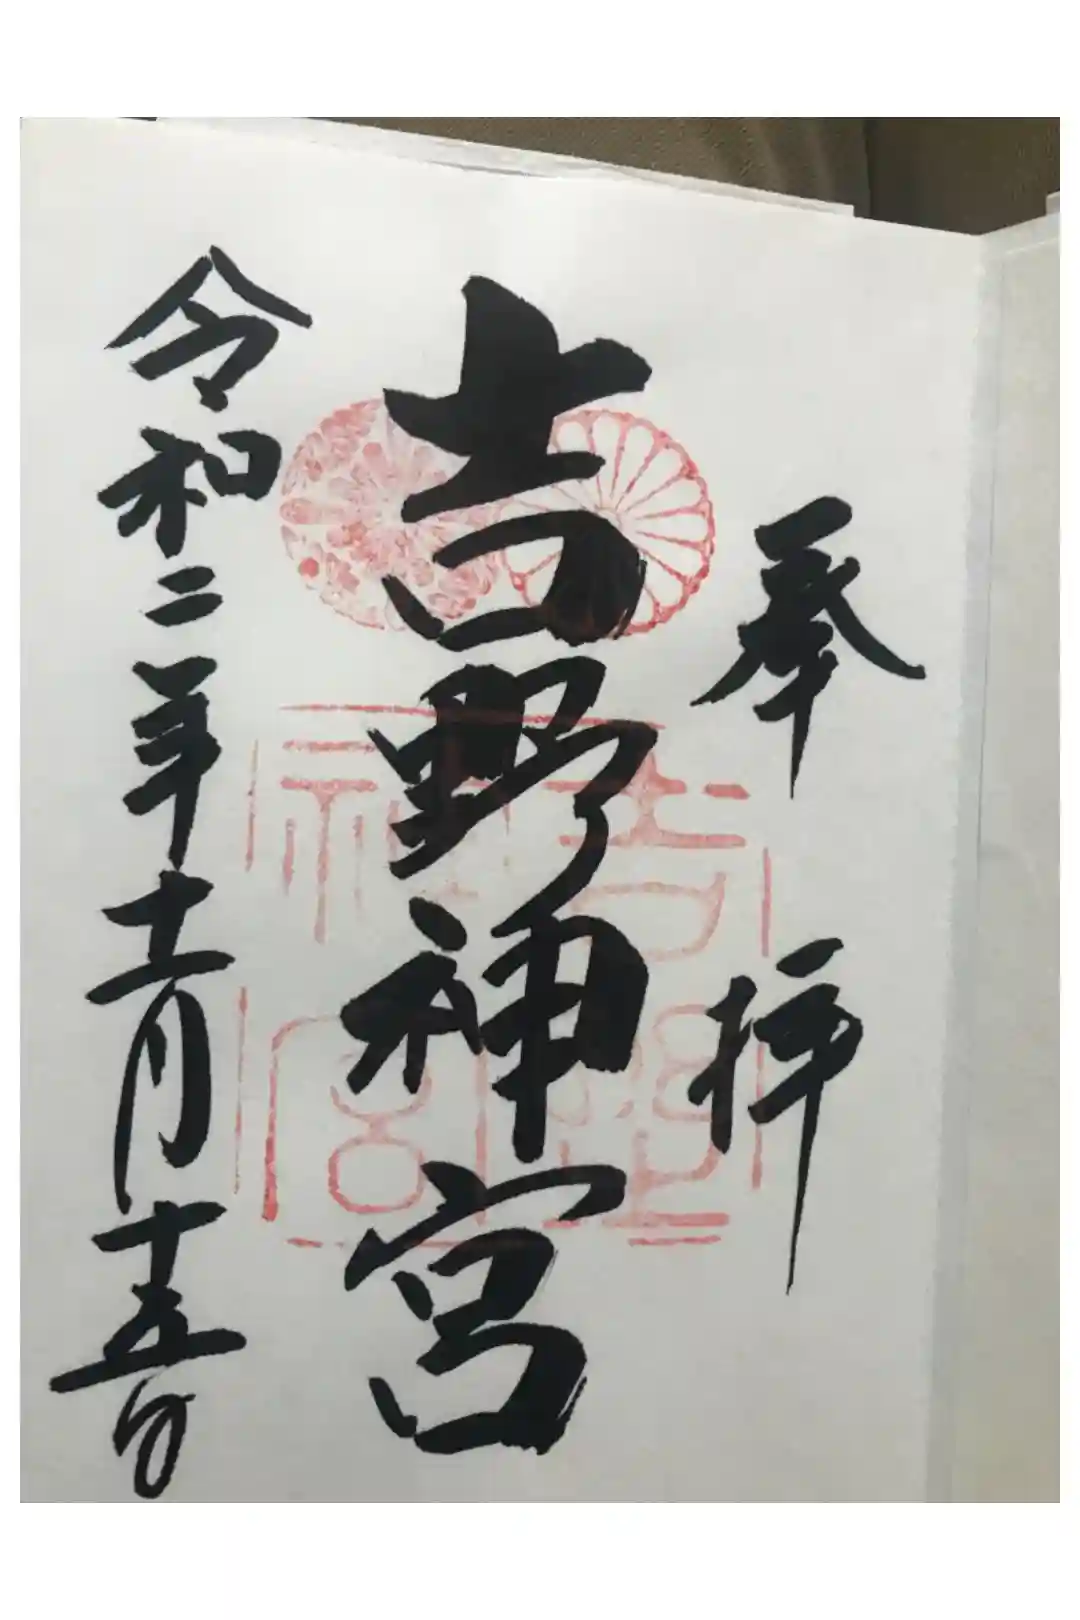 奉拝
吉野神宮
令和二年十一月十五日
吉野神宮